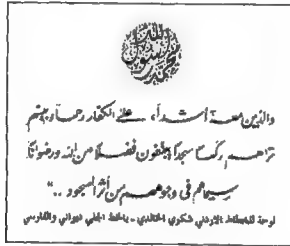 محمد رسول الله
والذين معه أشداء على الكفار رحماء بينهم
تراهم ركعا سجدا يبتغون فضلا من الله ورضوانا
سيماهم في وجوههم من أثر السجود .."
لوحة للخطاط الأردني شكري الخالدي - بالخط الجلي ديواني والفارسي